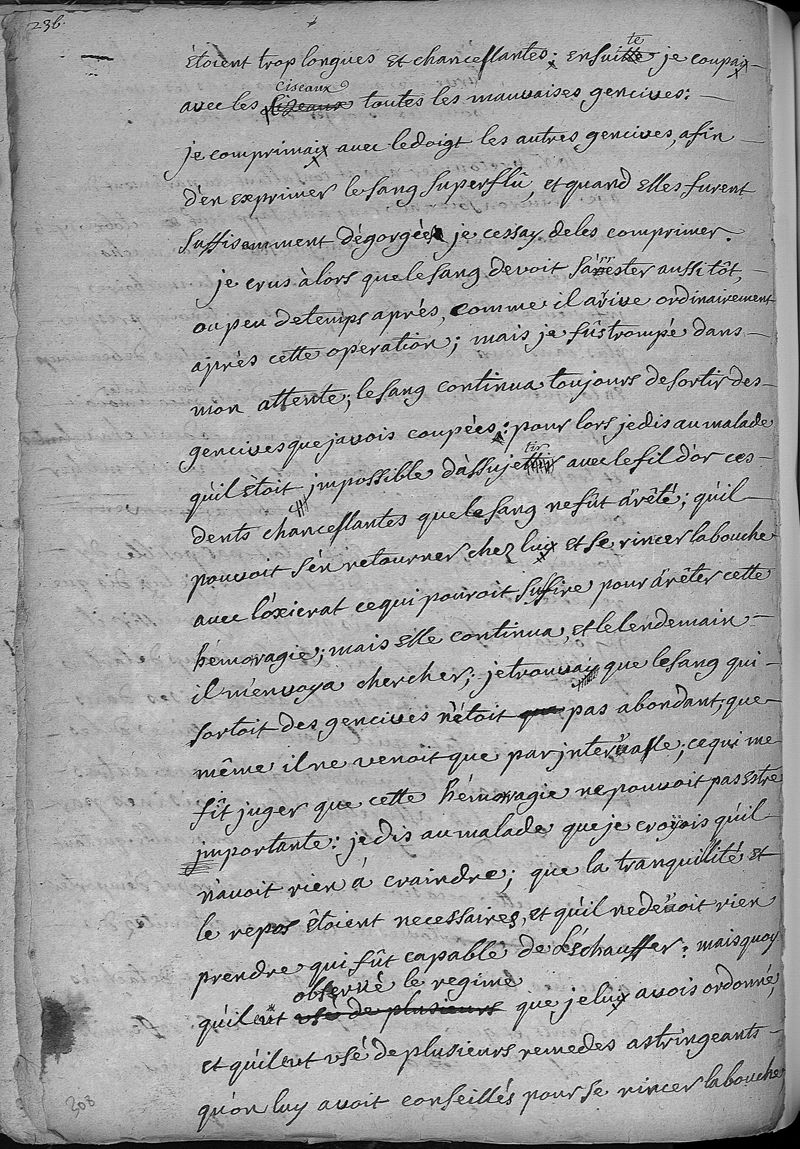 236.
étoient trop longues et chancellantes; ensuitte je coupaix
te
ciseaux
avec les sizeaux toutes les mauvaises gencives:
je comprimaix avec le doigt les autres gencives, afin
d'en exprimer le sang superflû, et quand elles furent
suffisamment dégorgées je cessay de les comprimer.
je crus àlors que le sang devoit s'àrrester aussi tôt,
ou peu de temps aprés, comme il arrive ordinairement
aprés cette operation; mais je fûs trompé dans
mon attente; le sang continua toujours de sortir des
gencives que j'avois coupées: pour lors je dis au malade
tir
qu'il étoit jmpossible d'àssujettir avec le fil d'or ces
dents chancellantes que le sang ne fût àrêté; qu'il
pouvoit s'én retourner chez luy et se rincer la bouche
avec l'óxicrat ce qui pouroit suffire pour àrêter cette
hémoragie; mais elle continua, et le lendemain
il m'envoya chercher; je trouvay que le sang qui
sortoit des gencives n'étoit que pas abondant, que
même il ne venoit que par jntervalle; ce qui me
fit juger que cette hémoragie ne pouvoit pas estre
jmportante: je dis au malade que je croyois qu'il
n'avoit rien à craindre; que la tranquilité et
le repos étoient necessaires, et qu'il ne devoit rien
prendre qui fût capable de l'éschauffer: mais quoy
observé le regime
qu'il eut usé de plusieurs que je lux avois ordonné,
et qu'il eut usé de plusieurs remedes astringeants
qu'on luy avoit conseillés pour se rincer la bouche
308